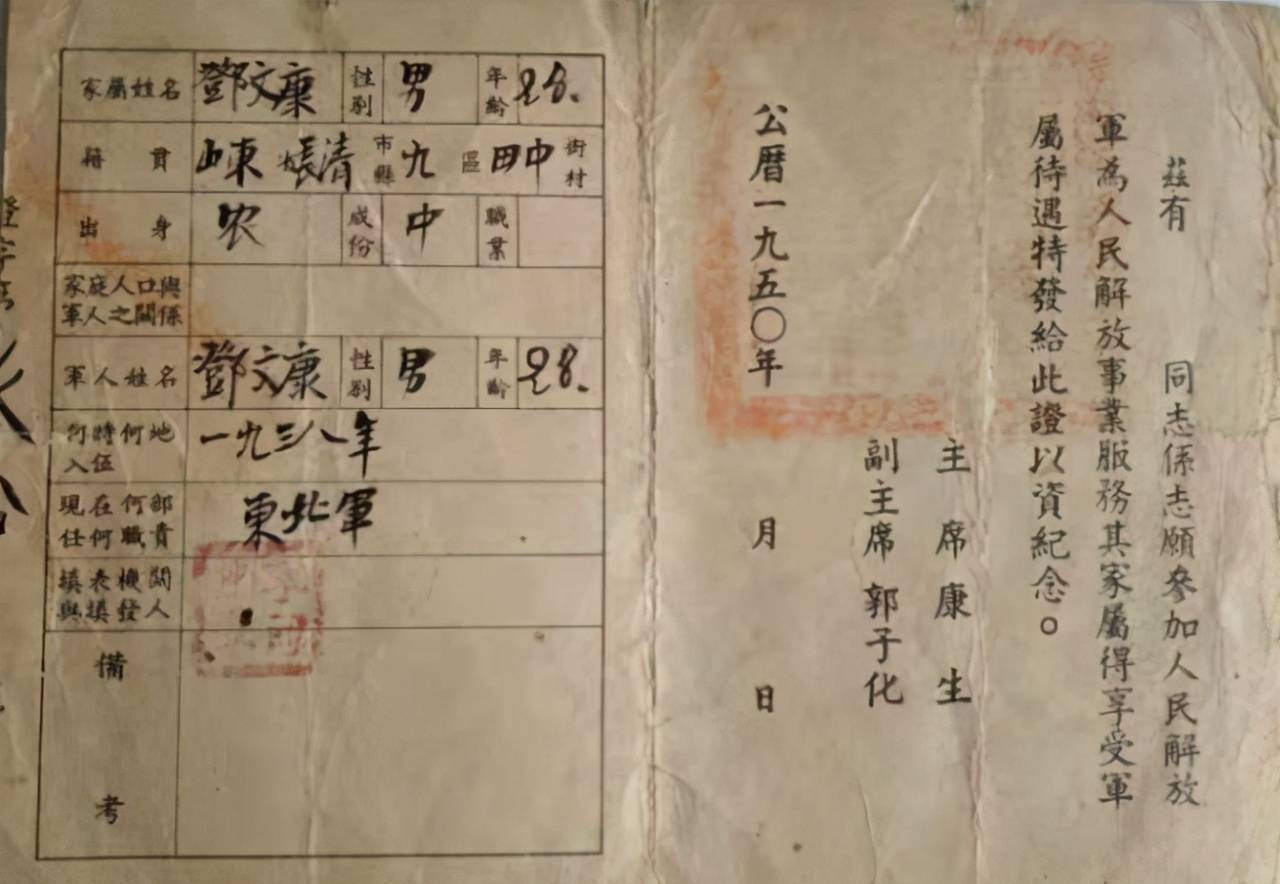 茲有 同志係志願參加人民解放
軍為人民解放事業服務其家屬得享受軍
屬待遇特發給此證以資紀念。
主席康生
副主席郭子化
公曆一九五〇年 月 日
家屬姓名 鄧文康 性別 男 年齡 28.
籍貫 山東 長清 市縣 九 區 田中 街村
出身 农 成份 中 職業
家庭人口與
軍人之關係
軍人姓名 鄧文康 性別 男 年齡 28.
何時何地 一九三八年
入伍
現在何部 東北軍
任何職責
填表機關
與填發人
備考